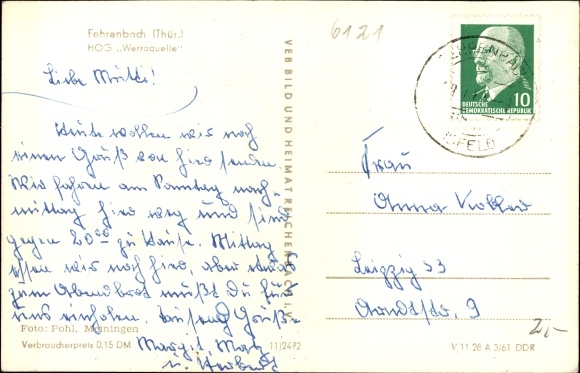 Fehrenbach (Thür.)
HOG „Werraquelle"
6121
Liebe Mutti!
Heute wollen wir noch
einen Gruß von hier senden.
Wir fahren am Sonntag nach-
mittag hier weg und sind
gegen 20⁰⁰ zu Hause. Mittag
essen wir noch hier, aber etwas
zum Abendbrot mußt Du für
uns einholen. Tausend Grüße
Margit, Matz
u. Herbert
Foto: Pohl, Meiningen
Verbraucherpreis 0,15 DM
11/2472
VEB BILD UND HEIMAT REICHENBACH I. V.
10
DEUTSCHE
DEMOKRATISCHE REPUBLIK
Frau
Anna
Leipzig S3
Arndtstr. 9
2,-
V 11 28 A 3/61 DDR